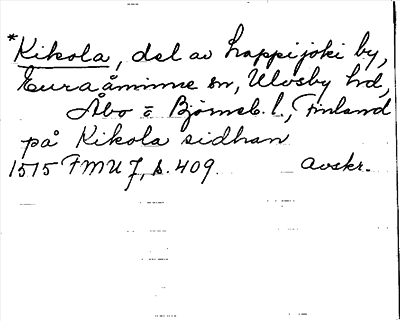 *Kikola, del av Lappijoki by,
Euraåminne sn, Ulvsby hd,
Åbo o Björneb. l., Finland
på Kikola sidhan
1515 FMU 7, s. 409. Avskr.